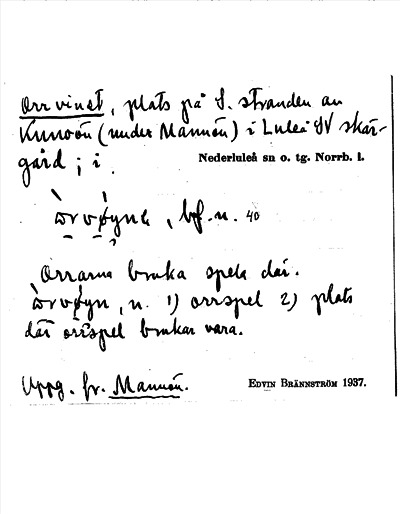 Orrvinet, plats på S. stranden av
Kunoön (under Mannön) i Luleå SV skär-
gård; i
Nederluleå sn o. tg. Norrb. l.
bf. n. 40
Orrarna bruka spela där.
n. 1) orrspel 2) plats
där orrspel brukar vara.
Uppg. fr. Mannön.
EDVIN BRÄNNSTRÖM 1937.